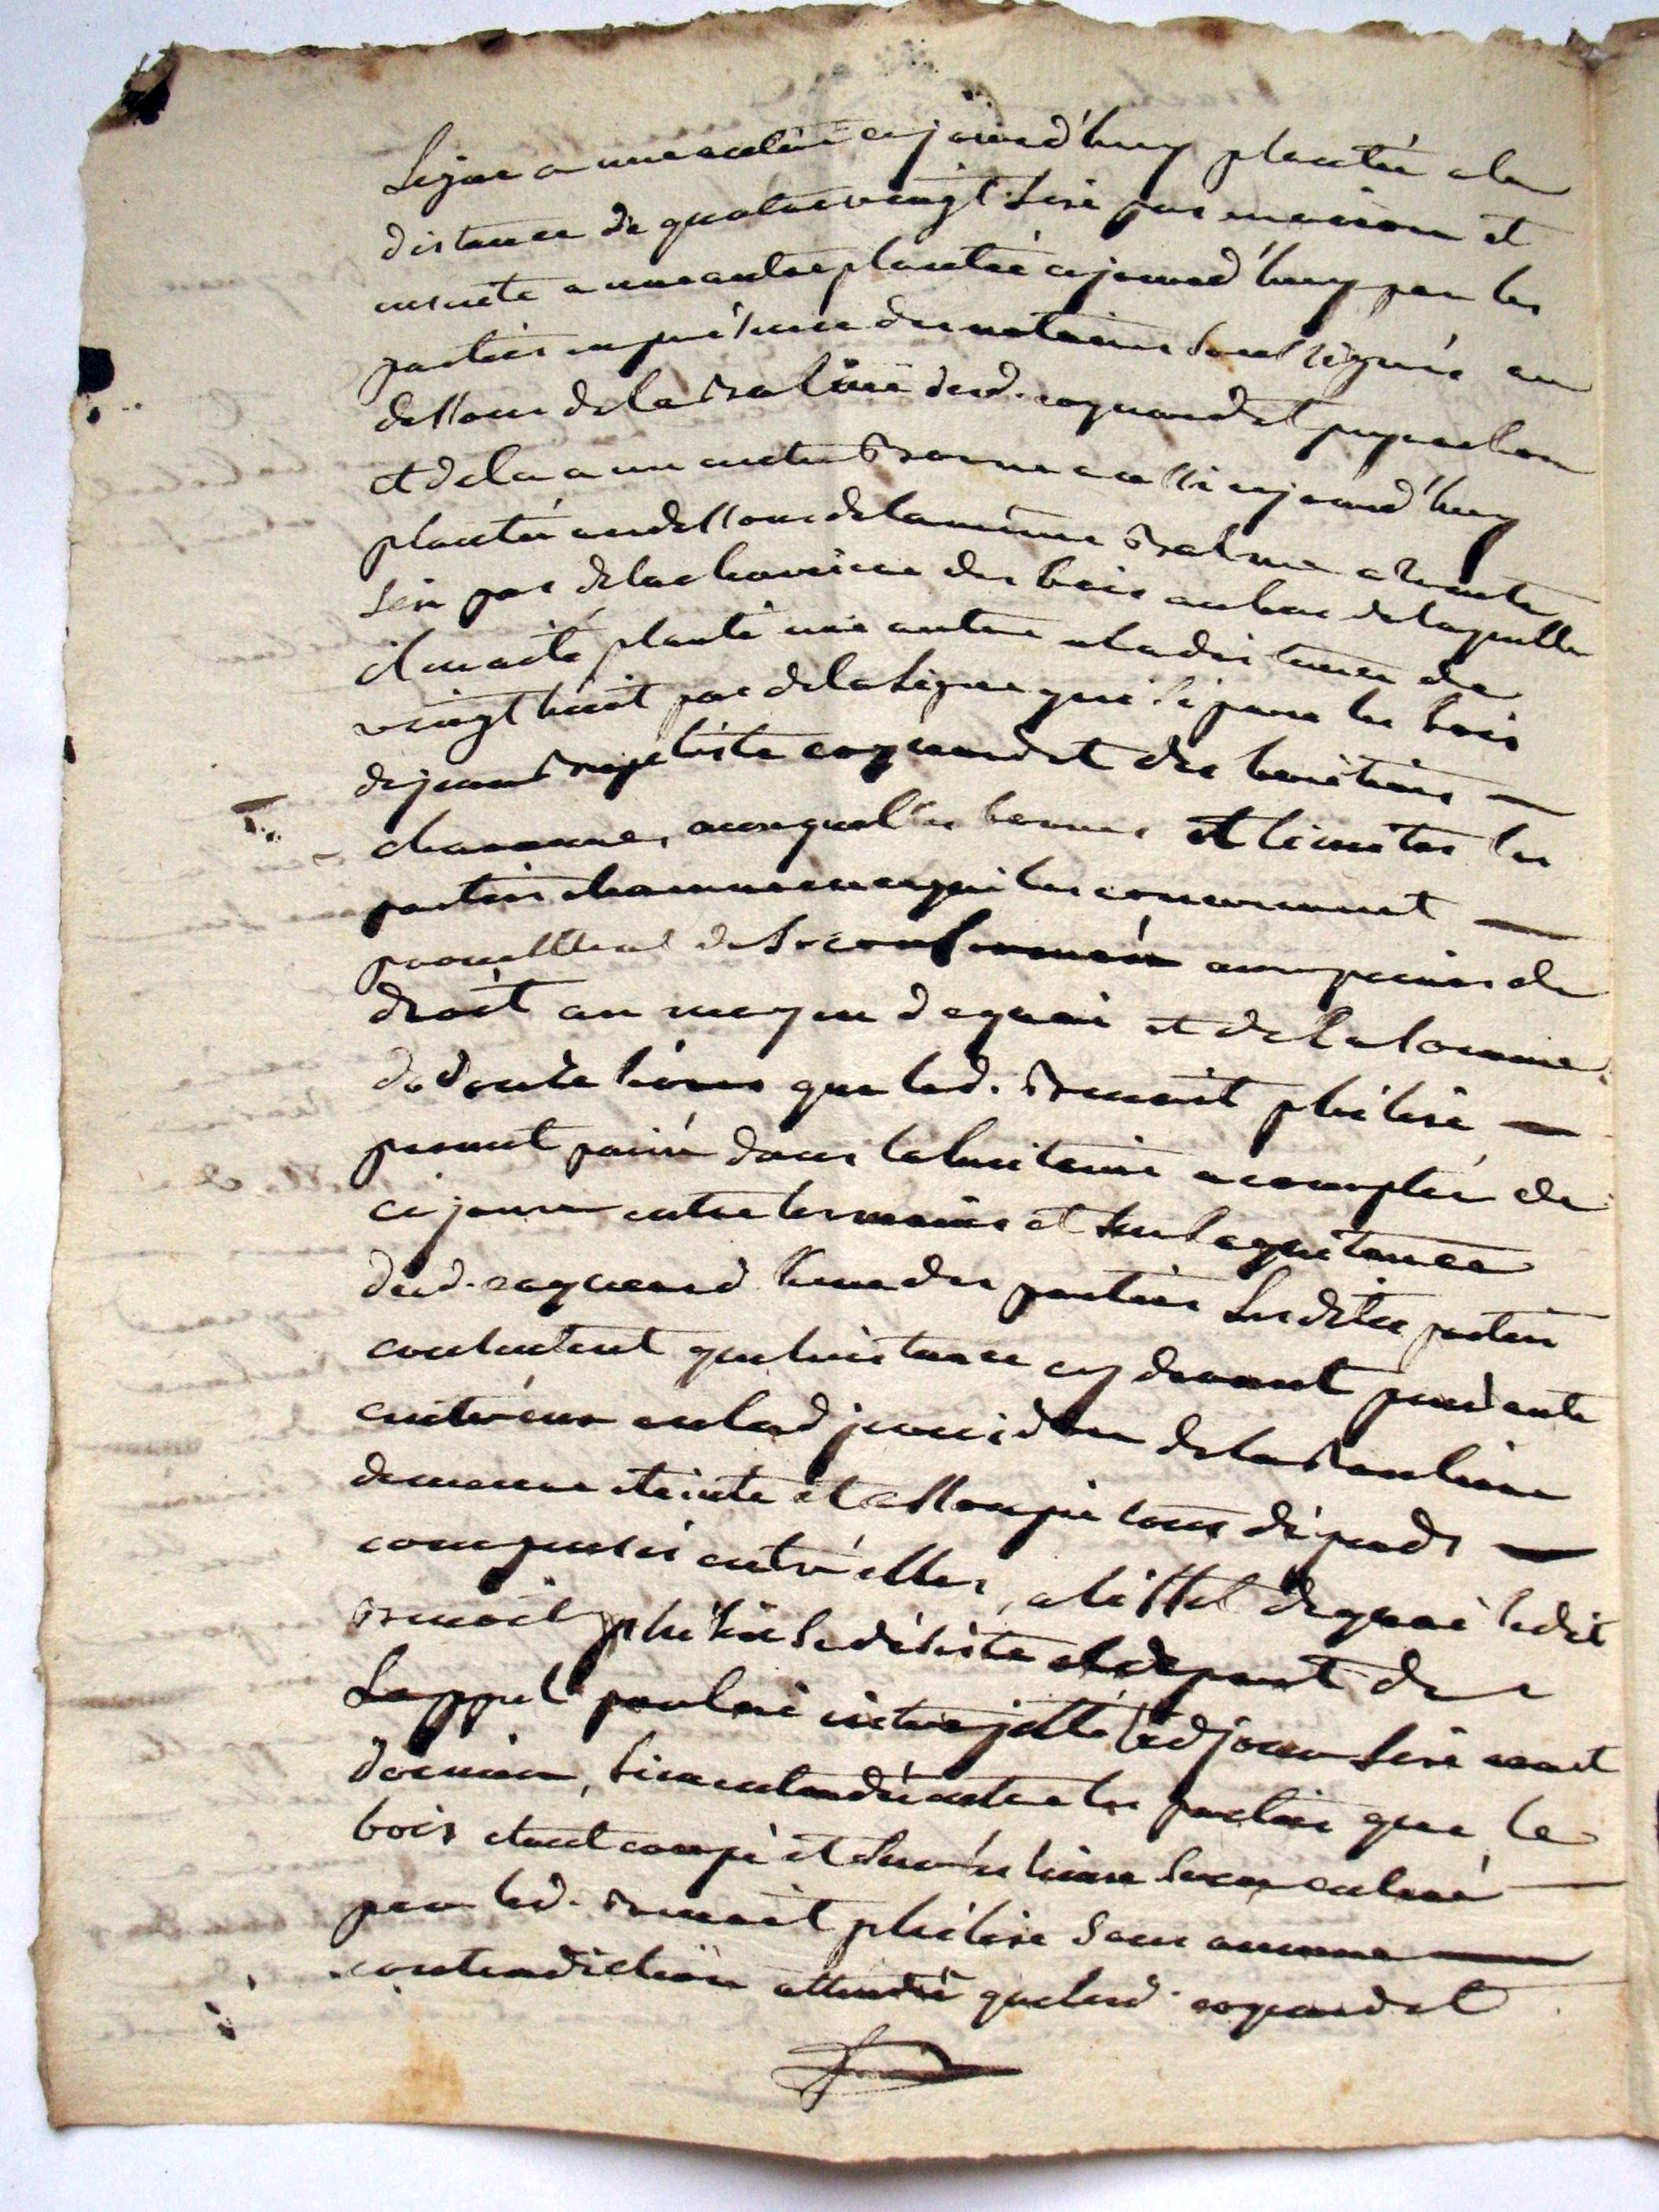 Ligne a une autre aujourd'huy plantée a la
distance de quatre vingt sixe pas environ et
ensuite a une autre plantée aujourd'huy par les
parties en présence des notaires soussignés au
dessous de la Balme dud. coquand et
et dela a une autre Borne aussi aujourd'huy
plantée au dessous de la même Balme a trente
sixe pas de la des bois au bas de laquelle
il en a été planté une autre a la distance de
vingt huit pas de la ligne qui sépare les bois
de jean Baptiste coquand et des heritiers
, auxquelles bornes et limites les
parties chacune en ce qui les concernent
promettent de se conformer aux peines de
droit au moyen de quoi et de la somme
de douze livres que led. Benoit philise
promet païer dans la huitaine a compter de
ce jour entre les mains et sur la quitance
dud. coquand l'une des parties Lesdites parties
consentent que l'instance cy devant pendante
entr'eux au de la
demeure éteinte et assoupie tous dépends
compensés entr'elles, a l'effet de quoi ledit
Benoit philise se désiste et départ de
Lappel par lui interjetté led jour sixe aout
dernier, bien entendu entre les parties que le
bois étant coupé et sera enlevé
par led. Benoit philise sans aucune
contradiction attendu que led. coquand et